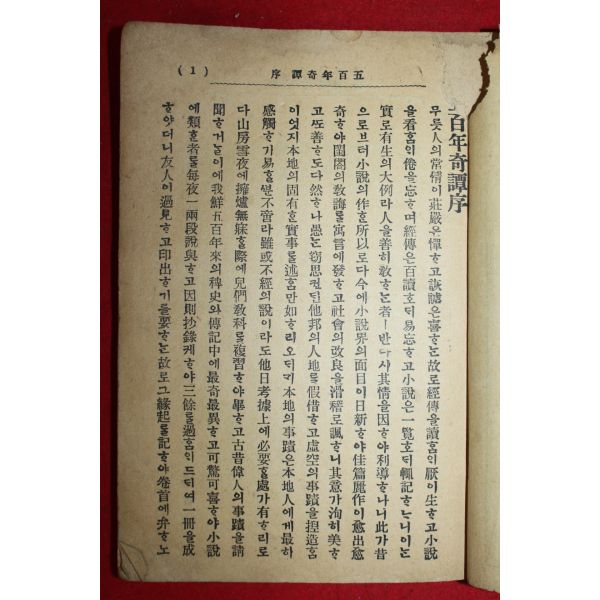 (1) 序 譚奇年百五
百年奇譚序
무릇人의常情이莊嚴은憚ᄒᆞ고詼謔은喜ᄒᆞᄂᆞᆫ故로經傳을讀ᄒᆞᆷᄋᆡ厭이生ᄒᆞ고小說
을看ᄒᆞᆷᄋᆡ倦을忘ᄒᆞ며經傳은百讀ᄒᆞ되易忘ᄒᆞ고小說은一覽ᄒᆞ되輒記ᄒᆞᄂᆞ니이ᄂᆞᆫ
實로有生의大例라人을善히敎ᄒᆞᄂᆞᆫ者ㅣ반다시其情을因ᄒᆞ야利導ᄒᆞ나니此가昔
으로브터小說의作ᄒᆞᆫ所以로다今에小說界의面目이日新ᄒᆞ야佳篇麗作이愈出愈
奇ᄒᆞ야閨閤의敎誨를寓言에發ᄒᆞ고社會의改良을滑稽로諷ᄒᆞ니其意가洵히美ᄒᆞ
고ᄯᅩ善ᄒᆞ도다然ᄒᆞ나愚ᄂᆞᆫ竊思컨ᄃᆡ他邦의人地를假借ᄒᆞ고虛空의事蹟을揑造ᄒᆞᆷ
이엇지本地의固有ᄒᆞᆫ實事를述ᄒᆞᆷ만如ᄒᆞ리오ᄃᆡ뎌本地의事蹟은本地人에게最히
感觸ᄒᆞ기易ᄒᆞᆯᄲᅮᆫ不啻라雖或不經의說이라도他日考據上에必要ᄒᆞᆯ處가有ᄒᆞ리로
다山房雪夜에擁爐無寐ᄒᆞᆯ際에兒們敎科를複習ᄒᆞ야畢ᄒᆞ고古昔偉人의事蹟을請
聞ᄒᆞ거ᄂᆞᆯ이에我鮮五百年來의稗史와傳記中에最奇最異ᄒᆞ고可驚可喜ᄒᆞ야小說
에類ᄒᆞᆫ者를每夜一兩段說與ᄒᆞ고因則抄錄케ᄒᆞ야三餘를過ᄒᆞᆷᄋᆡ드ᄃᆡ여一冊을成
ᄒᆞ얏더니友人이過見ᄒᆞ고印出ᄒᆞ기를要ᄒᆞᄂᆞᆫ故로그緣起를記ᄒᆞ야卷首에弁ᄒᆞ노